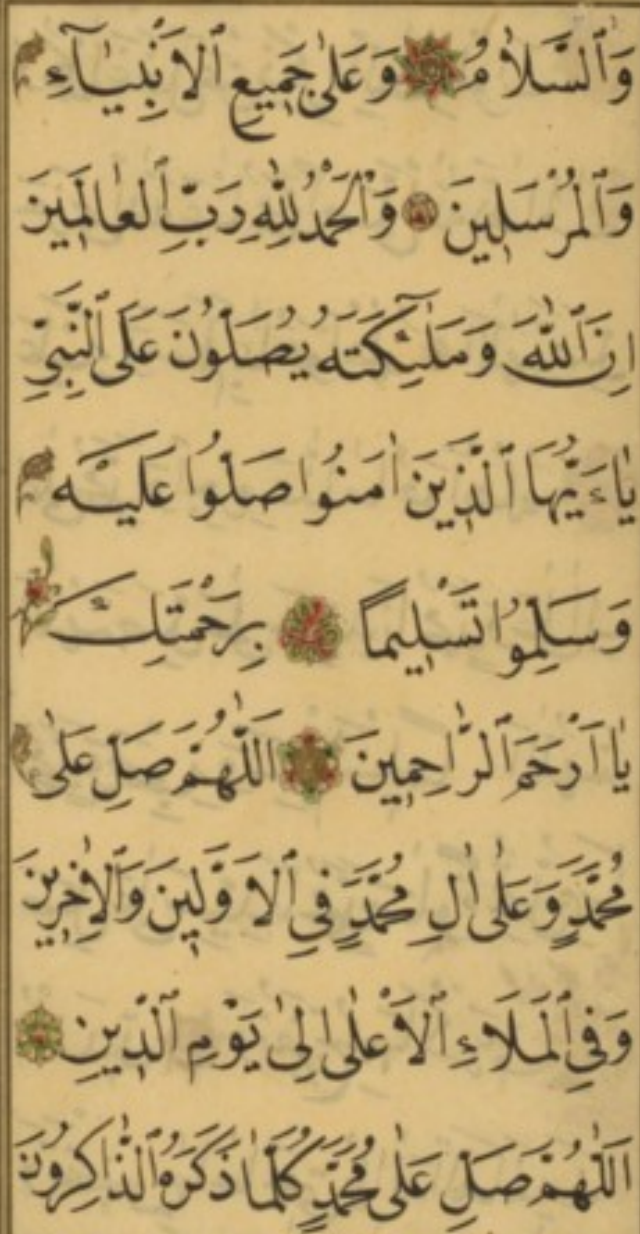 وَٱلسَّلَامُ وَعَلٰى جَمِيعِ ٱلْاَنْبِيَآءِ
وَٱلْمُرْسَلِينَ وَٱلْحَمْدُ لِلّٰهِ رَبِّ ٱلْعَالَمِينَ
اِنَّ ٱللّٰهَ وَمَلٰٓئِكَتَهُ يُصَلُّونَ عَلَى ٱلنَّبِيِّ
يَاءَيُّهَا ٱلَّذِينَ اٰمَنُوا صَلُّوا عَلَيْهِ
وَسَلِّمُوا تَسْلِيمًا بِرَحْمَتِكَ
يَا اَرْحَمَ ٱلرَّاحِمِينَ اَللّٰهُمَّ صَلِّ عَلٰى
مُحَمَّدٍ وَعَلٰى اٰلِ مُحَمَّدٍ فِي ٱلْاَوَّلِينَ وَٱلْاٰخِرِينَ
وَفِي ٱلْمَلَاءِ ٱلْاَعْلٰى اِلٰى يَوْمِ ٱلدِّينِ
اَللّٰهُمَّ صَلِّ عَلٰى مُحَمَّدٍ كُلَّمَا ذَكَرَهُ ٱلذَّاكِرُونَ